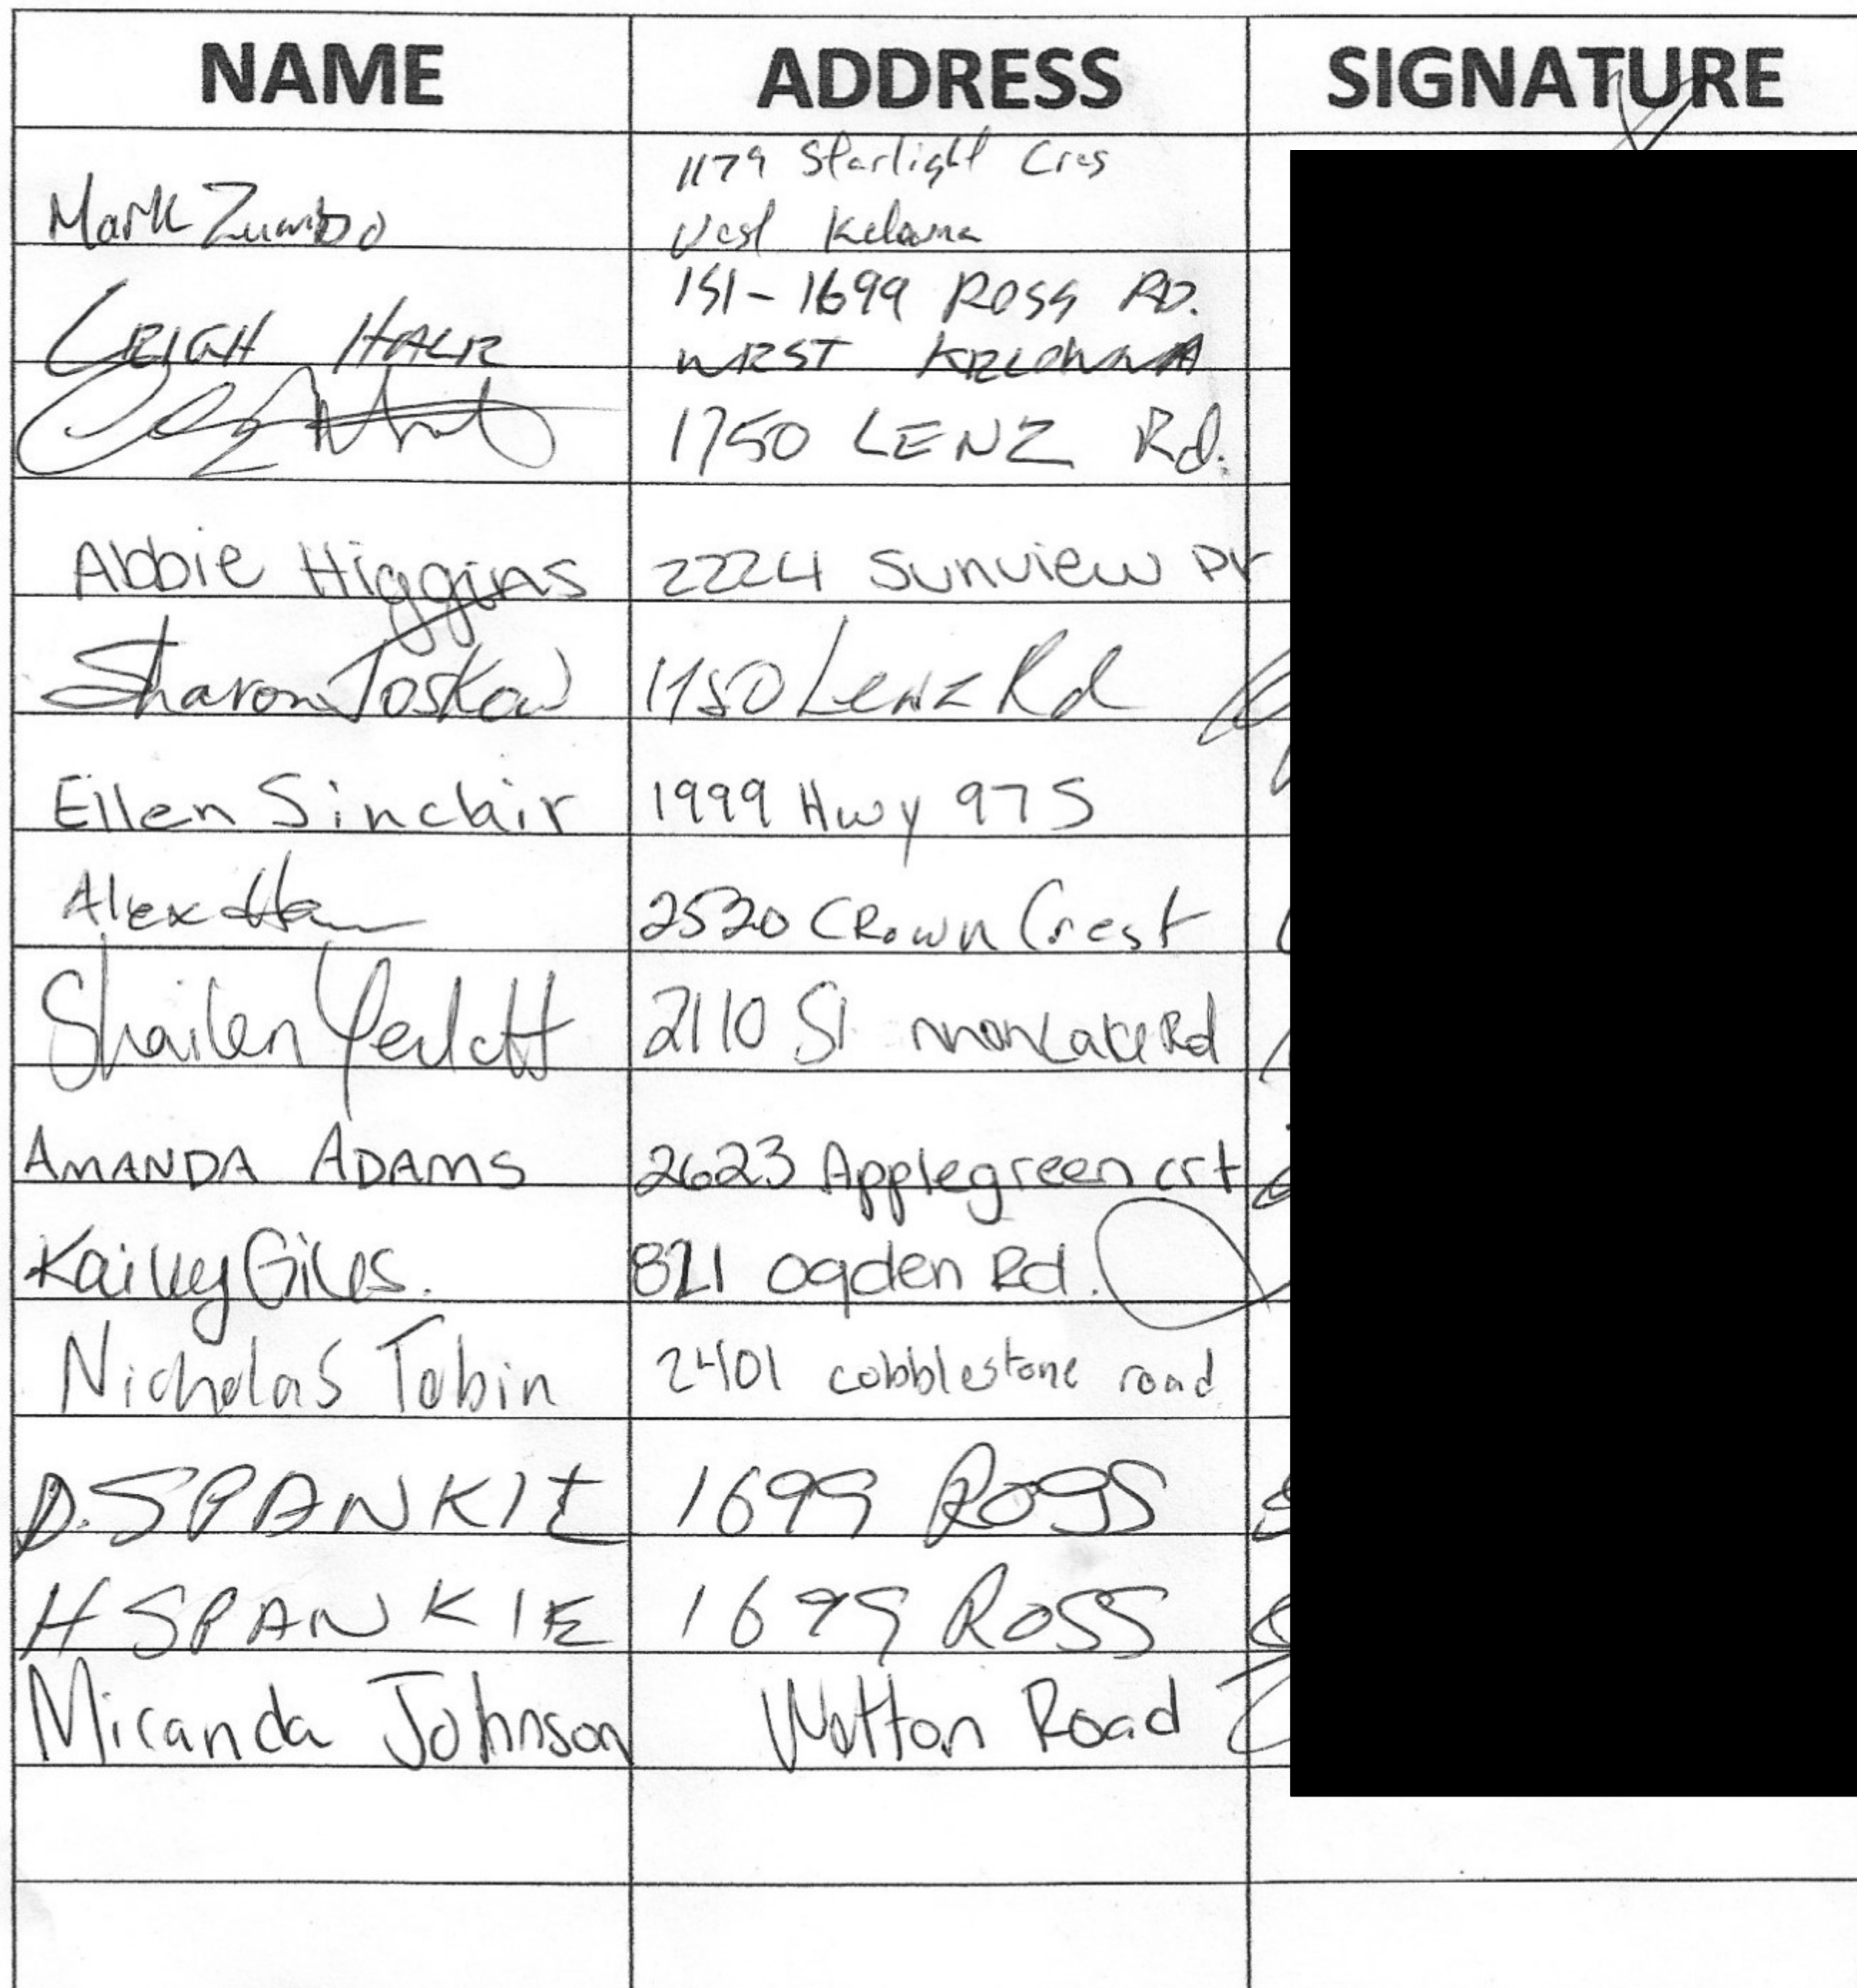 NAME ADDRESS SIGNATURE
Mark Zumbo 1179 Starlight Cres
West Kelowna
LEIGH HALE 151-1699 ROSS RD.
WEST KELOWNA
1750 LENZ Rd.
Abbie Higgins 2224 Sunview Dr
Sharon Toskow 1750 Lenz Rd
Ellen Sinclair 1999 Hwy 97 S
Alex 2520 CROWN Crest
Shailen 2110 Shannon Lake Rd
AMANDA ADAMS 2623 Applegreen crt
Kailey Giles. 821 Ogden Rd.
Nicholas Tobin 2401 cobblestone road
D. SPANKIE 1699 ROSS
H SPANKIE 1699 ROSS
Miranda Johnson Road